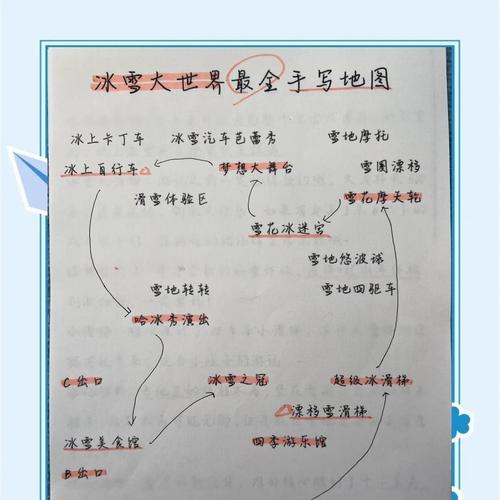 冰雪大世界最全手写地图
冰上卡丁车 冰雪汽车芭蕾秀 雪地摩托
冰上自行车 梦想大舞台 雪圈漂移
滑雪体验区 雪花摩天轮
雪花冰迷宫
雪地悠波球
雪地转转 雪地四驱车
哈冰秀演出
C出口 冰雪之冠 超级冰滑梯
漂移雪滑梯
冰雪美食馆 四季游乐馆
B出口